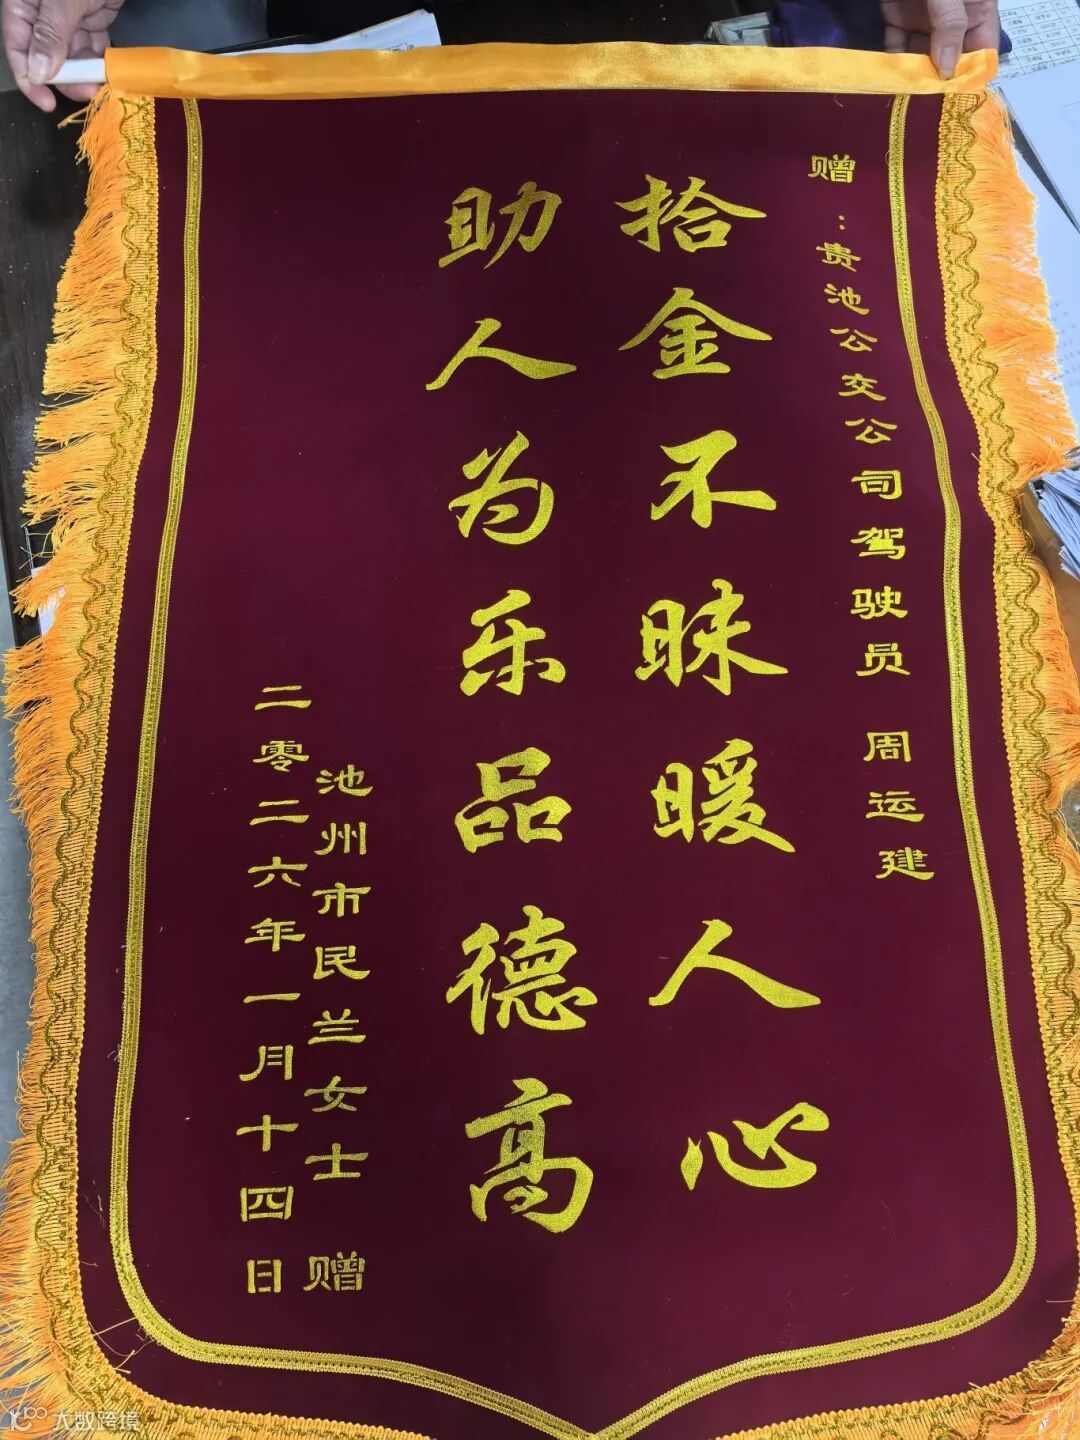 赠：贵池公交公司驾驶员 周运建
拾金不昧暖人心
助人为乐品德高
池州市民兰女士 赠
二零二六年一月十四日
大数跨境